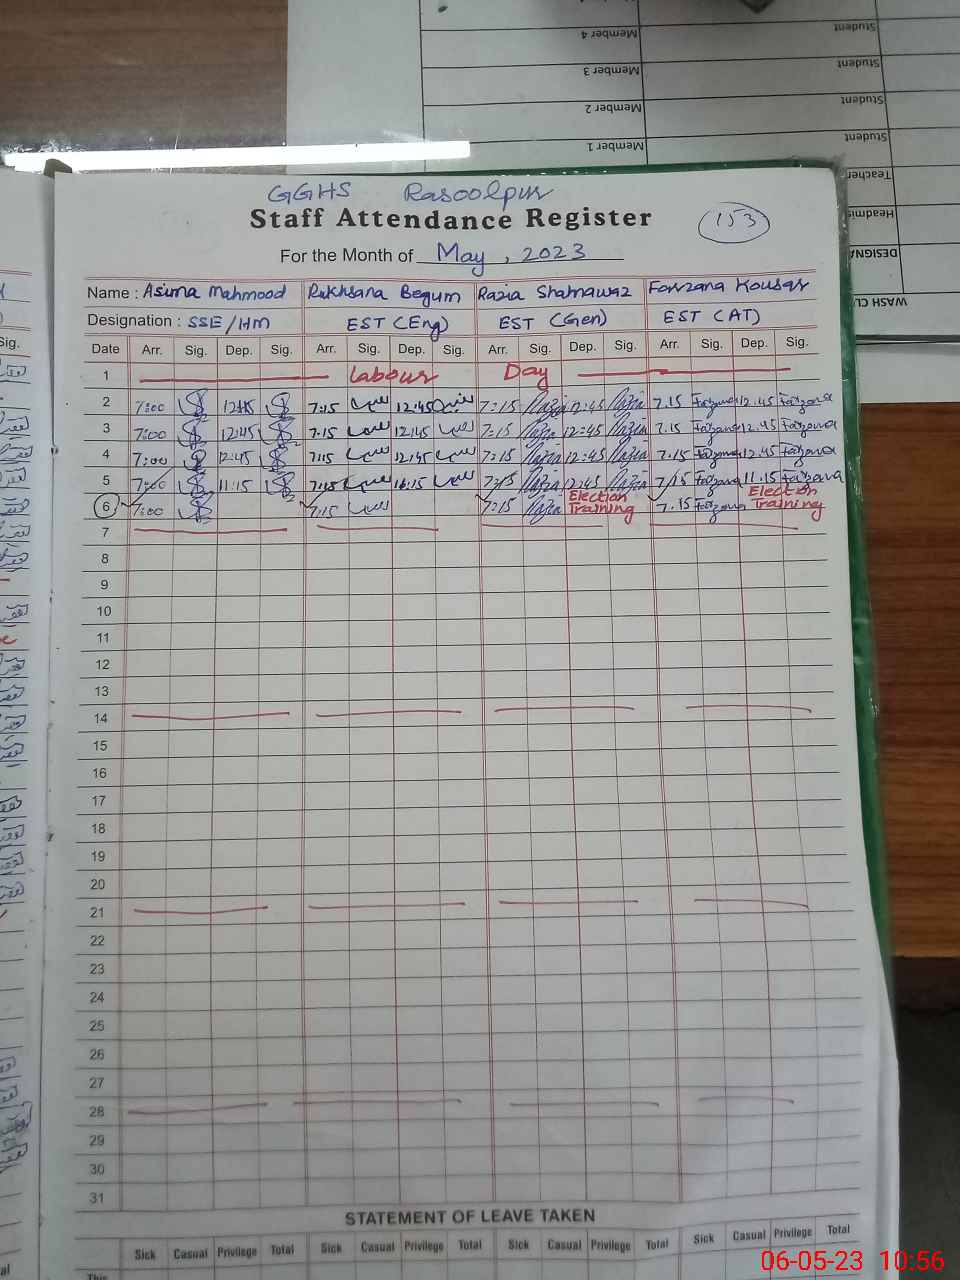 Member 4 Student
Member 3 Student
Member 2 Student
Member 1 Student
Teacher
DESIGNA
WASH CL
GGHS Rasoolpur
Staff Attendance Register
153
For the Month of May, 2023
Name : Asima Mahmood Rukhsana Begum Razia Shahnawaz Farzana Kousar
Designation : SSE/HM EST (Eng) EST (Gen) EST (AT)
Date Arr. Sig. Dep. Sig. Arr. Sig. Dep. Sig. Arr. Sig. Dep. Sig. Arr. Sig. Dep. Sig.
1 Labour Day
2 7:00 12:45 7:15 12:45 7:15 Razia 12:45 Razia 7.15 Farzana 12.45 Farzana
3 7:00 12:45 7.15 12:45 7:15 Razia 12:45 Razia 7.15 Farzana 12.45 Farzana
4 7:00 12:45 7:15 12:45 7:15 Razia 12:45 Razia 7.15 Farzana 12.45 Farzana
5 7:00 11:15 7:15 11:15 7:15 Razia 12:45 Razia 7.15 Farzana 11.15 Farzana
6 7:00 7:15 7:15 Razia Election Training 7.15 Farzana Election Training
7
8
9
10
11
12
13
14
15
16
17
18
19
20
21
22
23
24
25
26
27
28
29
30
31
STATEMENT OF LEAVE TAKEN
Sick Casual Privilege Total Sick Casual Privilege Total Sick Casual Privilege Total Sick Casual Privilege Total
This
06-05-23 10:56